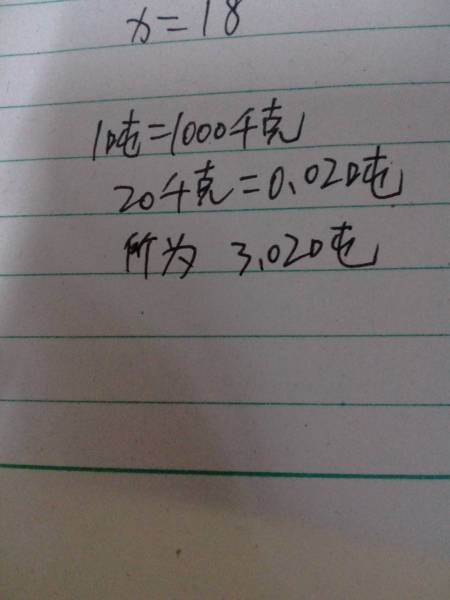 x=18
1吨=1000千克
20千克=0.02吨
所为 3.02吨